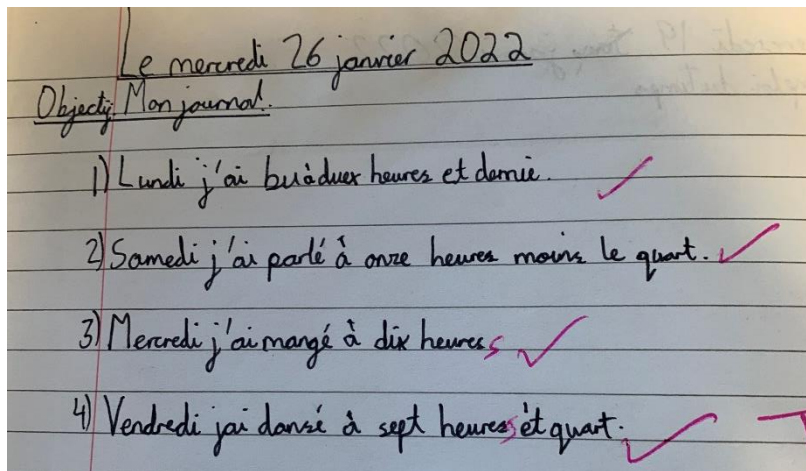 Le mercredi 26 janvier 2022
Objectif: Mon journal.
1) Lundi j'ai bu à duex heures et demie.
2) Samedi j'ai parlé à onze heures moins le quart.
3) Mercredi j'ai mangé à dix heures
4) Vendredi jai dansé à sept heures et quart.